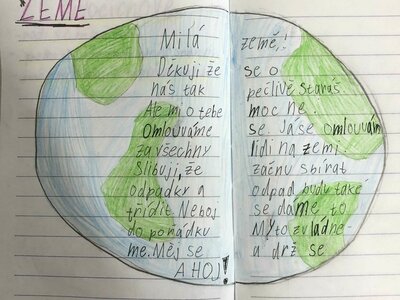 ZEMĚ
Milá země,!
Děkuji že se o
nás tak pečlivě staráš
Ale mi o tebe moc ne.
Omlouváme se. Já se omlouvám
za všechny lidi na zemi.
Slibuji, že začnu sbírat
odpadky a odpad budu také
třídit. Neboj se dáme to
do pořádku My to zvládne-
me. Měj se a drž se
AHOJ!